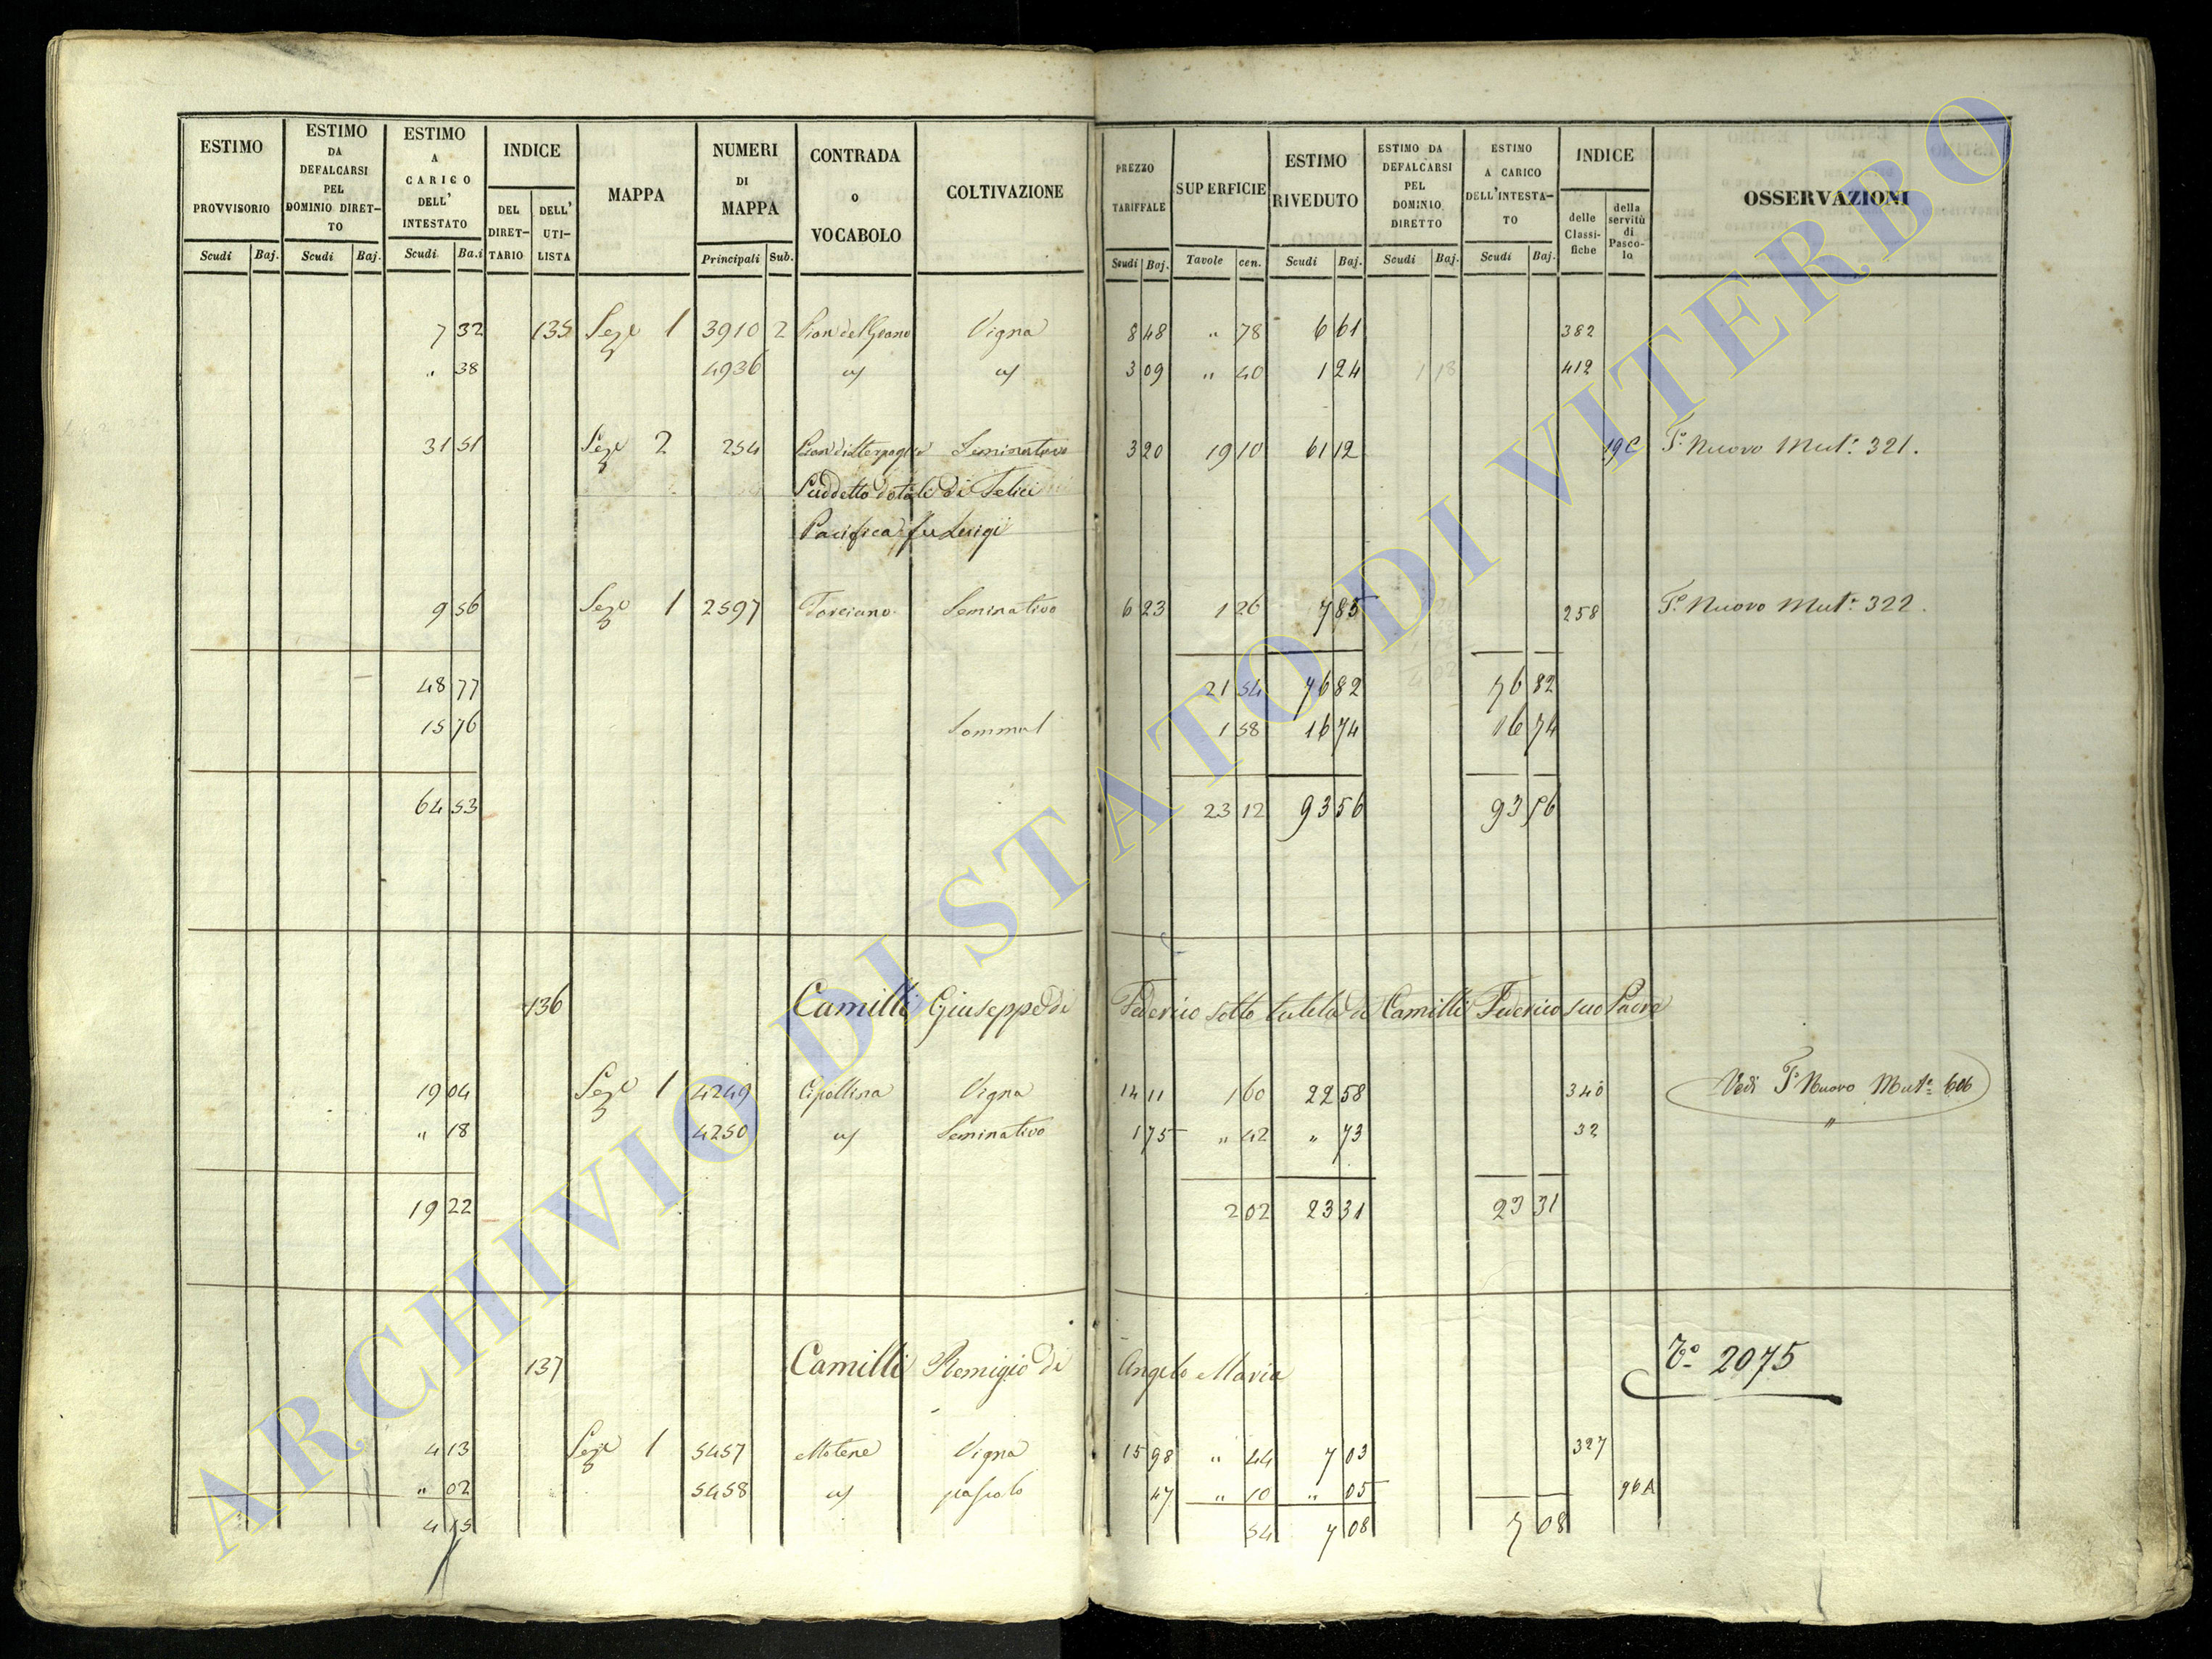 ESTIMO PROVVISORIO Scudi Baj.
ESTIMO DA DEFALCARSI PEL DOMINIO DIRET-TO Scudi Baj.
ESTIMO A CARICO DELL' INTESTATO Scudi Ba.i
INDICE DEL DIRET-TARIO DELL' UTI-LISTA
MAPPA
NUMERI DI MAPPA Principali Sub.
CONTRADA o VOCABOLO
COLTIVAZIONE
PREZZO TARIFFALE Scudi Baj.
SUPERFICIE Tavole cen.
ESTIMO RIVEDUTO Scudi Baj.
ESTIMO DA DEFALCARSI PEL DOMINIO DIRETTO Scudi Baj.
ESTIMO A CARICO DELL'INTESTA-TO Scudi Baj.
INDICE delle Classi-fiche della servitù di Pasco-lo
OSSERVAZIONI
7 32 135 Sez. 1 3910 2 Pian del Grano Vigna 8 48 " 78 6 61 382
" 38 4936 " " 3 09 " 40 1 24 1 18 412
31 51 Sez. 2 254 Seminativo 3 20 19 10 61 12 19C T. Nuovo Mut. 321.
Suddetto dotali di Felici
Pacifica fu Luigi
9 56 Sez. 1 2597 Torciano Seminativo 6 23 1 26 7 85 258 T. Nuovo Mut. 322.
48 77 21 54 76 82 76 82
15 76 Sommal 1 58 16 74 16 74
64 53 23 12 93 56 93 56
136 Camilli Giuseppe di Federico sotto tutela di Camilli Federico suo Padre
19 04 Sez. 1 4249 Cipollina Vigna 14 11 1 60 22 58 340 Vedi T. Nuovo Mut. 606
" 18 4250 " Seminativo 1 75 " 42 " 73 32 "
19 22 2 02 23 31 23 31
137 Camilli Remigio di Angelo Maria Vo 2075
4 13 Sez. 1 5457 Motene Vigna 15 98 " 44 7 03 327
" 02 5458 " pascolo 47 " 10 " 05 96A
4 15 54 7 08 7 08
ARCHIVIO DI STATO DI VITERBO